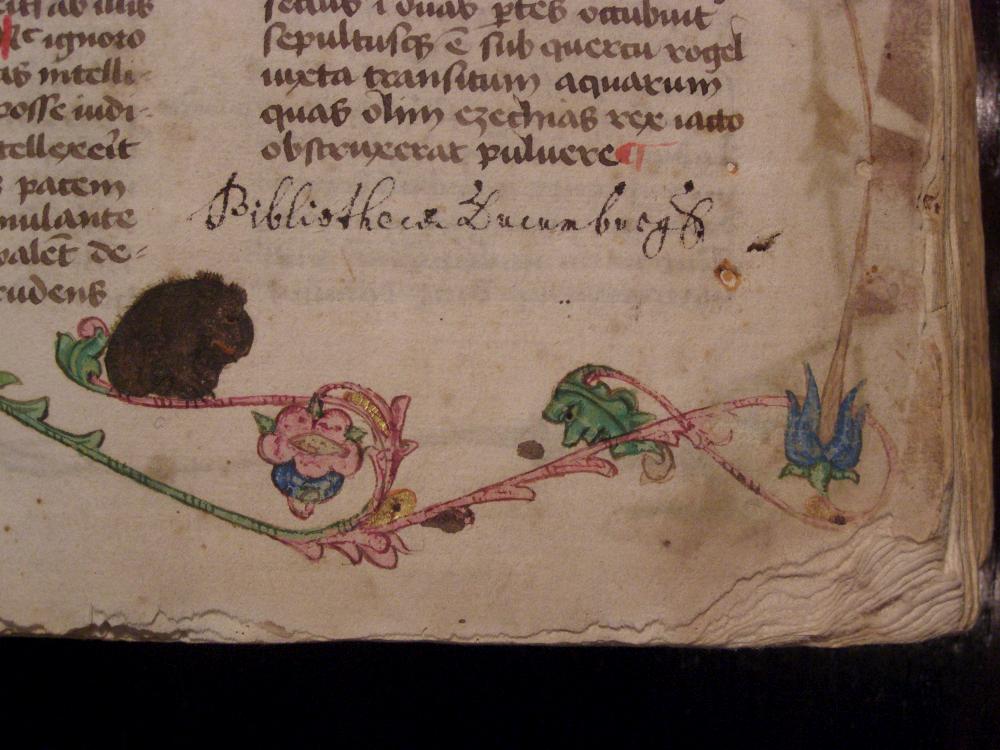 ignoro
intelli-
posse iudi-
tellexeit
patem
mulante
valēt de-
rudens
sectus i duas ptes occubuit
sepultusq ē sub quercu rogel
iuxta transitum aquarum
quas olim ezechias rex iacto
obstruxerat pulvere
Bibliothecæ